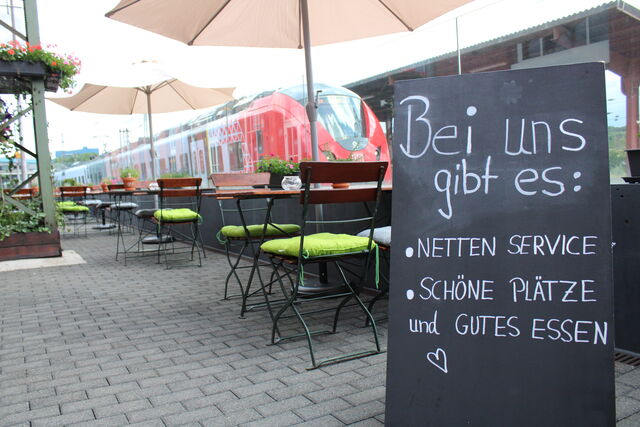 Bei uns
gibt es:
• NETTEN SERVICE
• SCHÖNE PLÄTZE
und GUTES ESSEN
♡